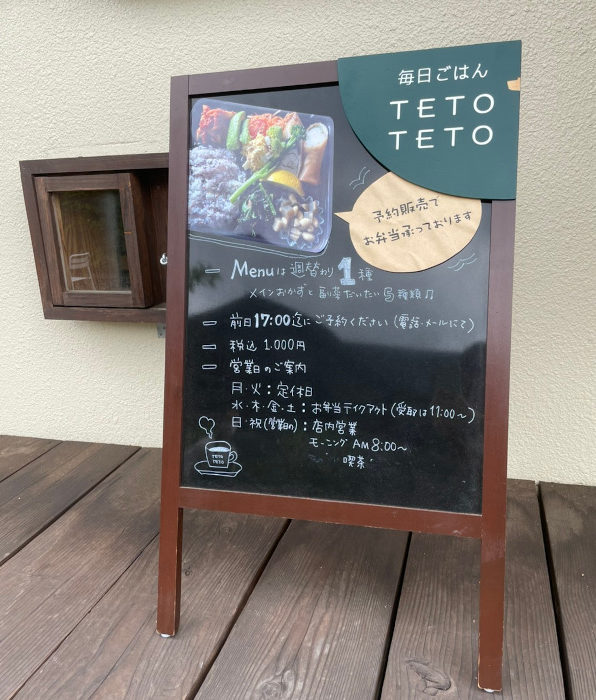 毎日ごはん
TETO
TETO
予約販売で
お弁当承っております
Menuは週替わり1種
メインおかずと副菜だいたい5種類♫
前日17:00迄にご予約ください(電話・メールにて)
税込 1.000円
営業日のご案内
月・火:定休日
水・木・金・土:お弁当テイクアウト(受取は11:00~)
日・祝(営業の):店内営業
モーニング AM8:00~
喫茶
TETO
TETO